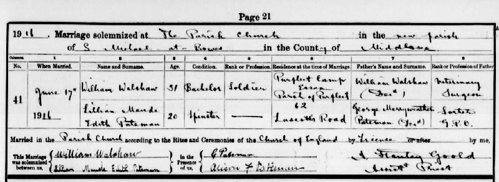 Page 21
1916. Marriage solemnized at The Parish Church in the new parish
of S. Michael-at-Bowes in the County of Middlesex
Columns:— 1 2 3 4 5 6 7 8
No. When Married. Name and Surname. Age. Condition. Rank or Profession. Residence at the time of Marriage. Father's Name and Surname. Rank or Profession of Father.
41 June 17th 1916 William Walshaw 31 Bachelor Soldier Purfleet Camp Essex Parish of Purfleet William Walshaw (Dec'd) Veterinary Surgeon
Lillian Maude Edith Pateman 20 Spinster 62 Road George Pateman (Dec'd) Sorter G.P.O.
Married in the Parish Church according to the Rites and Ceremonies of the Church of England by Licence or after by me,
This Marriage was solemnized between us, William Walshaw Lillian Maude Edith Pateman in the Presence of us, G Pateman A. Stanley Goold
Asst Priest